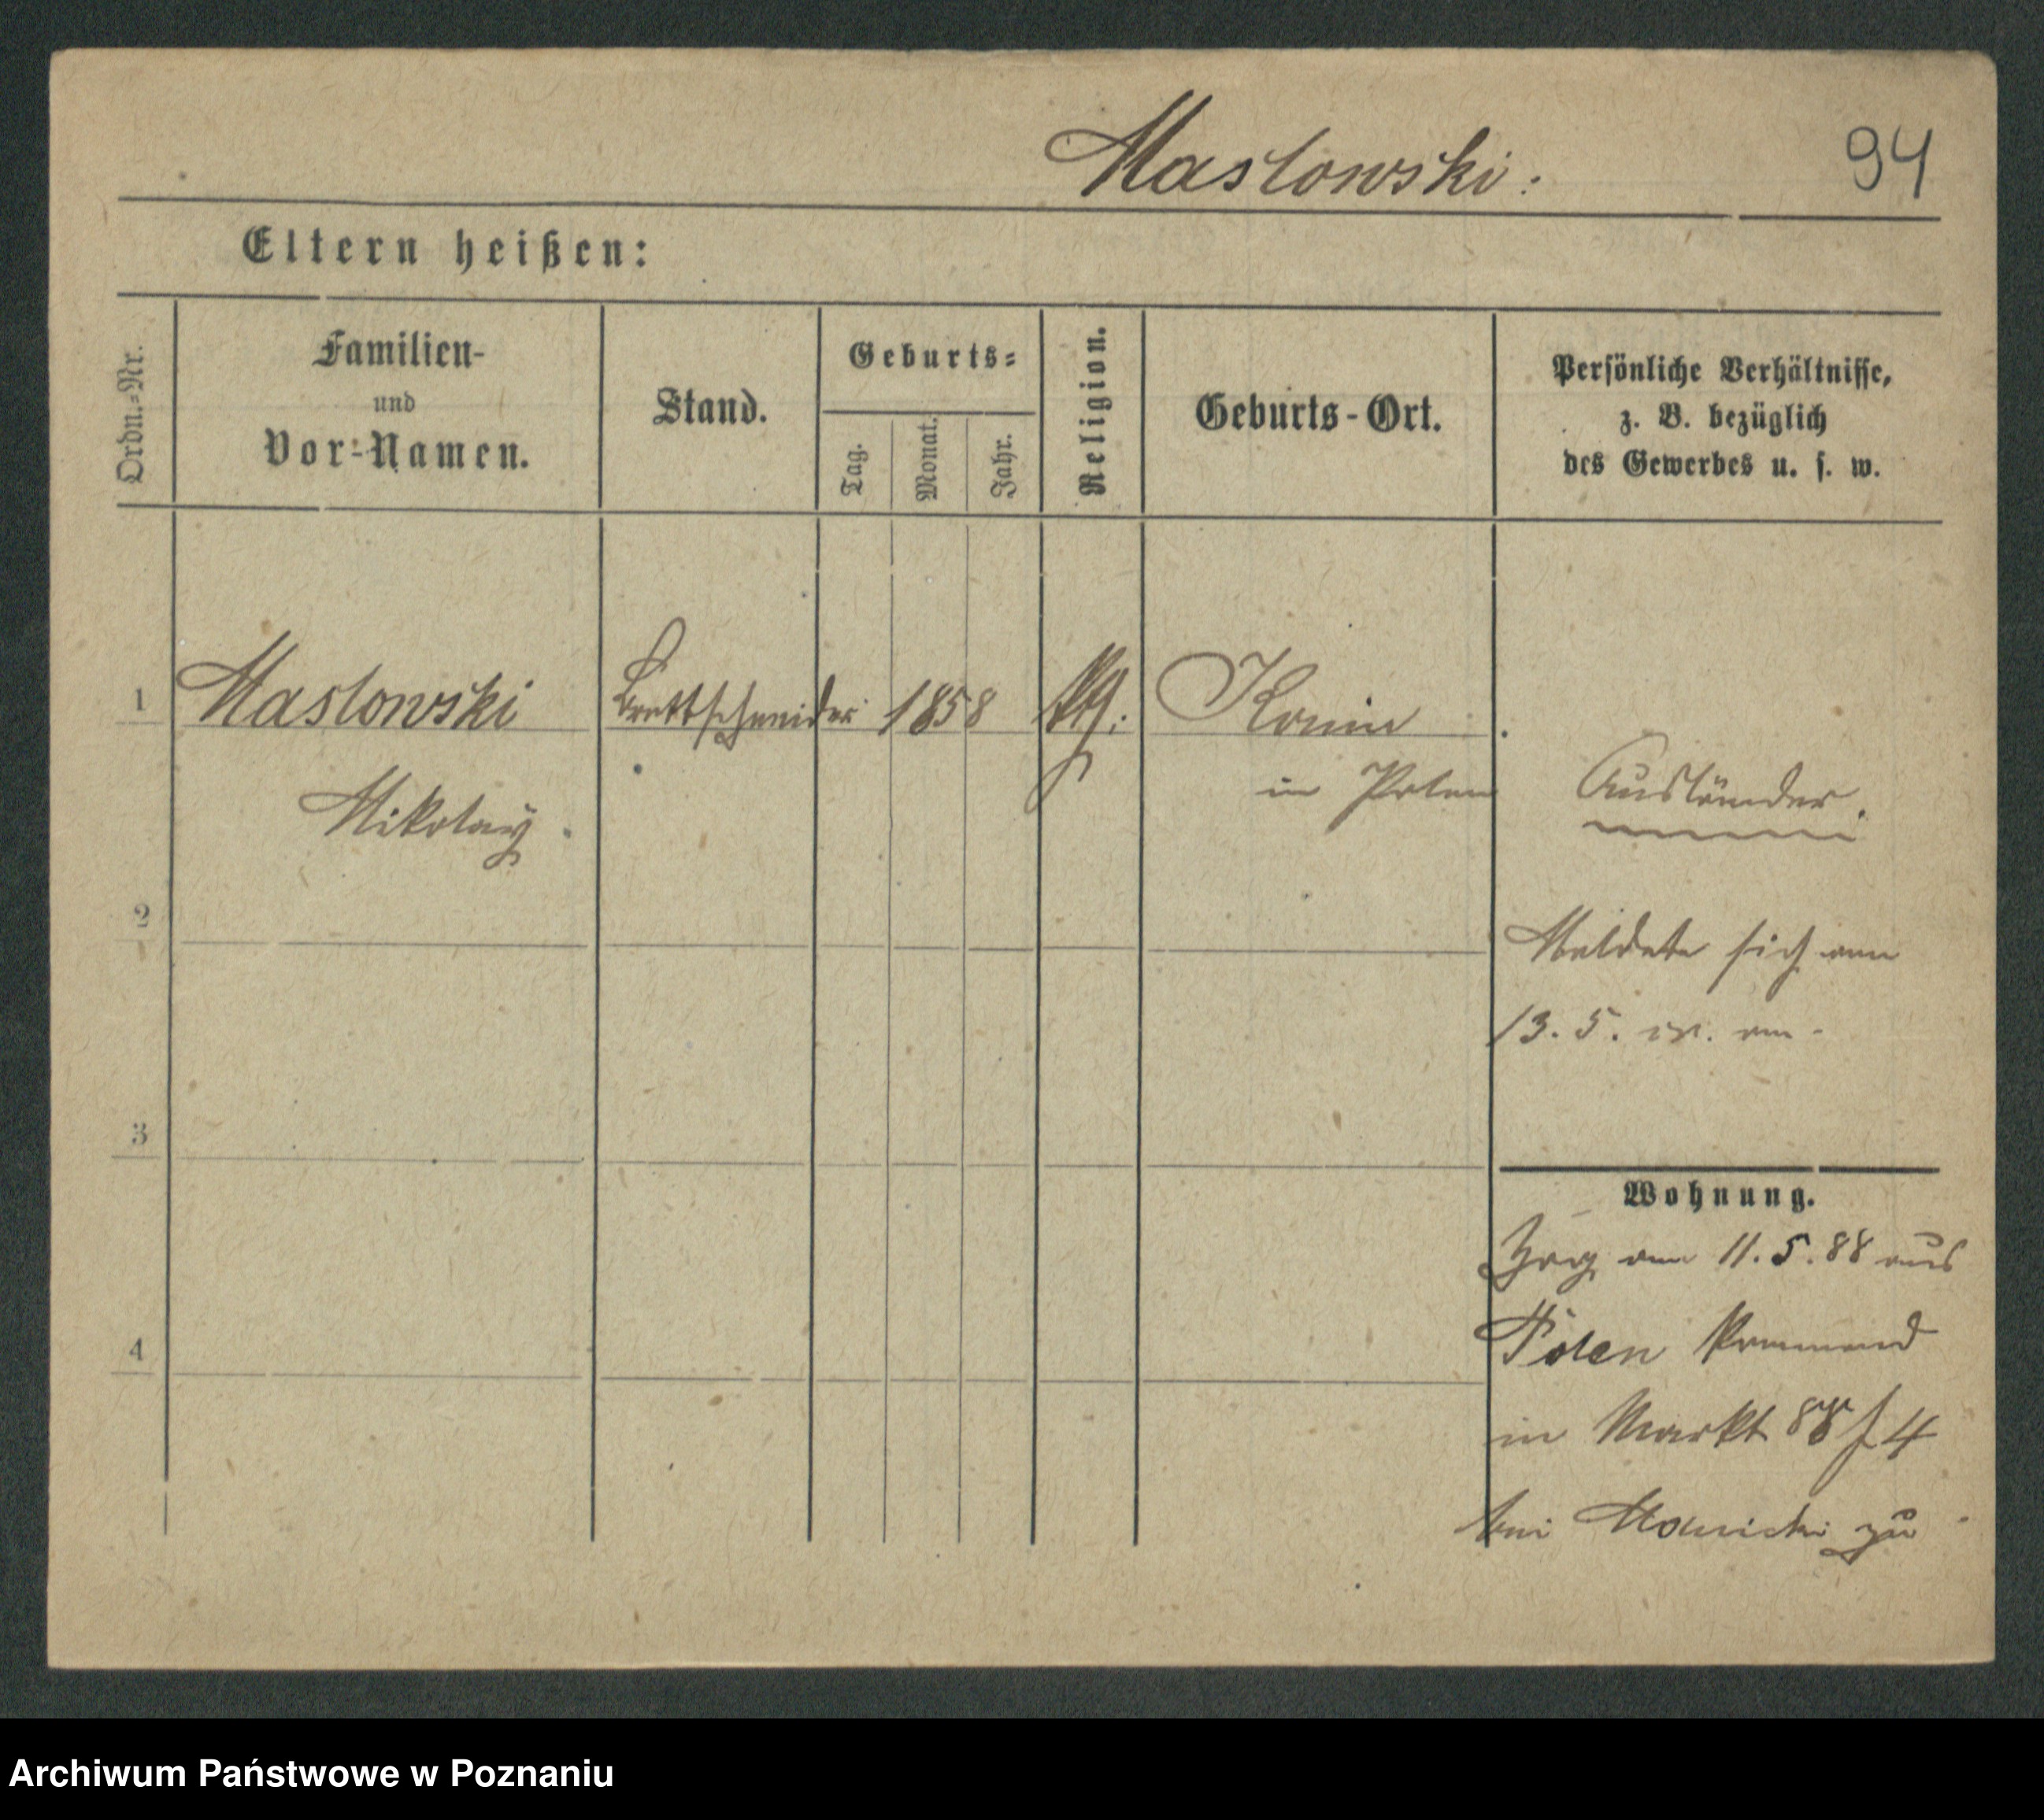 Maslowski. 94
Eltern heißen:
Ordn.-Nr.
Familien-
und
Vor-Namen.
Stand.
Geburts-
Tag.
Monat.
Jahr.
Religion.
Geburts-Ort.
Persönliche Verhältnisse,
z. B. bezüglich
des Gewerbes u. s. w.
1 Maslowski Brettschneider 1858 Konin
Mikolay. in Polen
Ausländer.
2
Meldete sich am
13. 5. an.
3
Wohnung.
Zog am 11. 5. 88 aus
4
Polen kommend
in Markt 88 4
bei zu
Archiwum Państwowe w Poznaniu